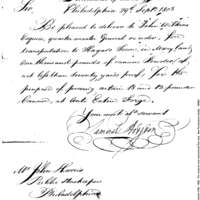 Sir,
Philadelphia 29th Sept 1808
Be pleased to deliver to John Wilkins
Esquire, quarter master General or order, for
transportation to Hagars Town, in Maryland,
one thousand pounds of cannon Powder,
not less than seventy yards proof, for the
purpose of proving certain 18 and 12 pounder
Cannon, at Antie Eatim Forge.
Your most obt servant
Samuel Hodgdon
Mr John Harris
Public Storekeeper
Philadelphia